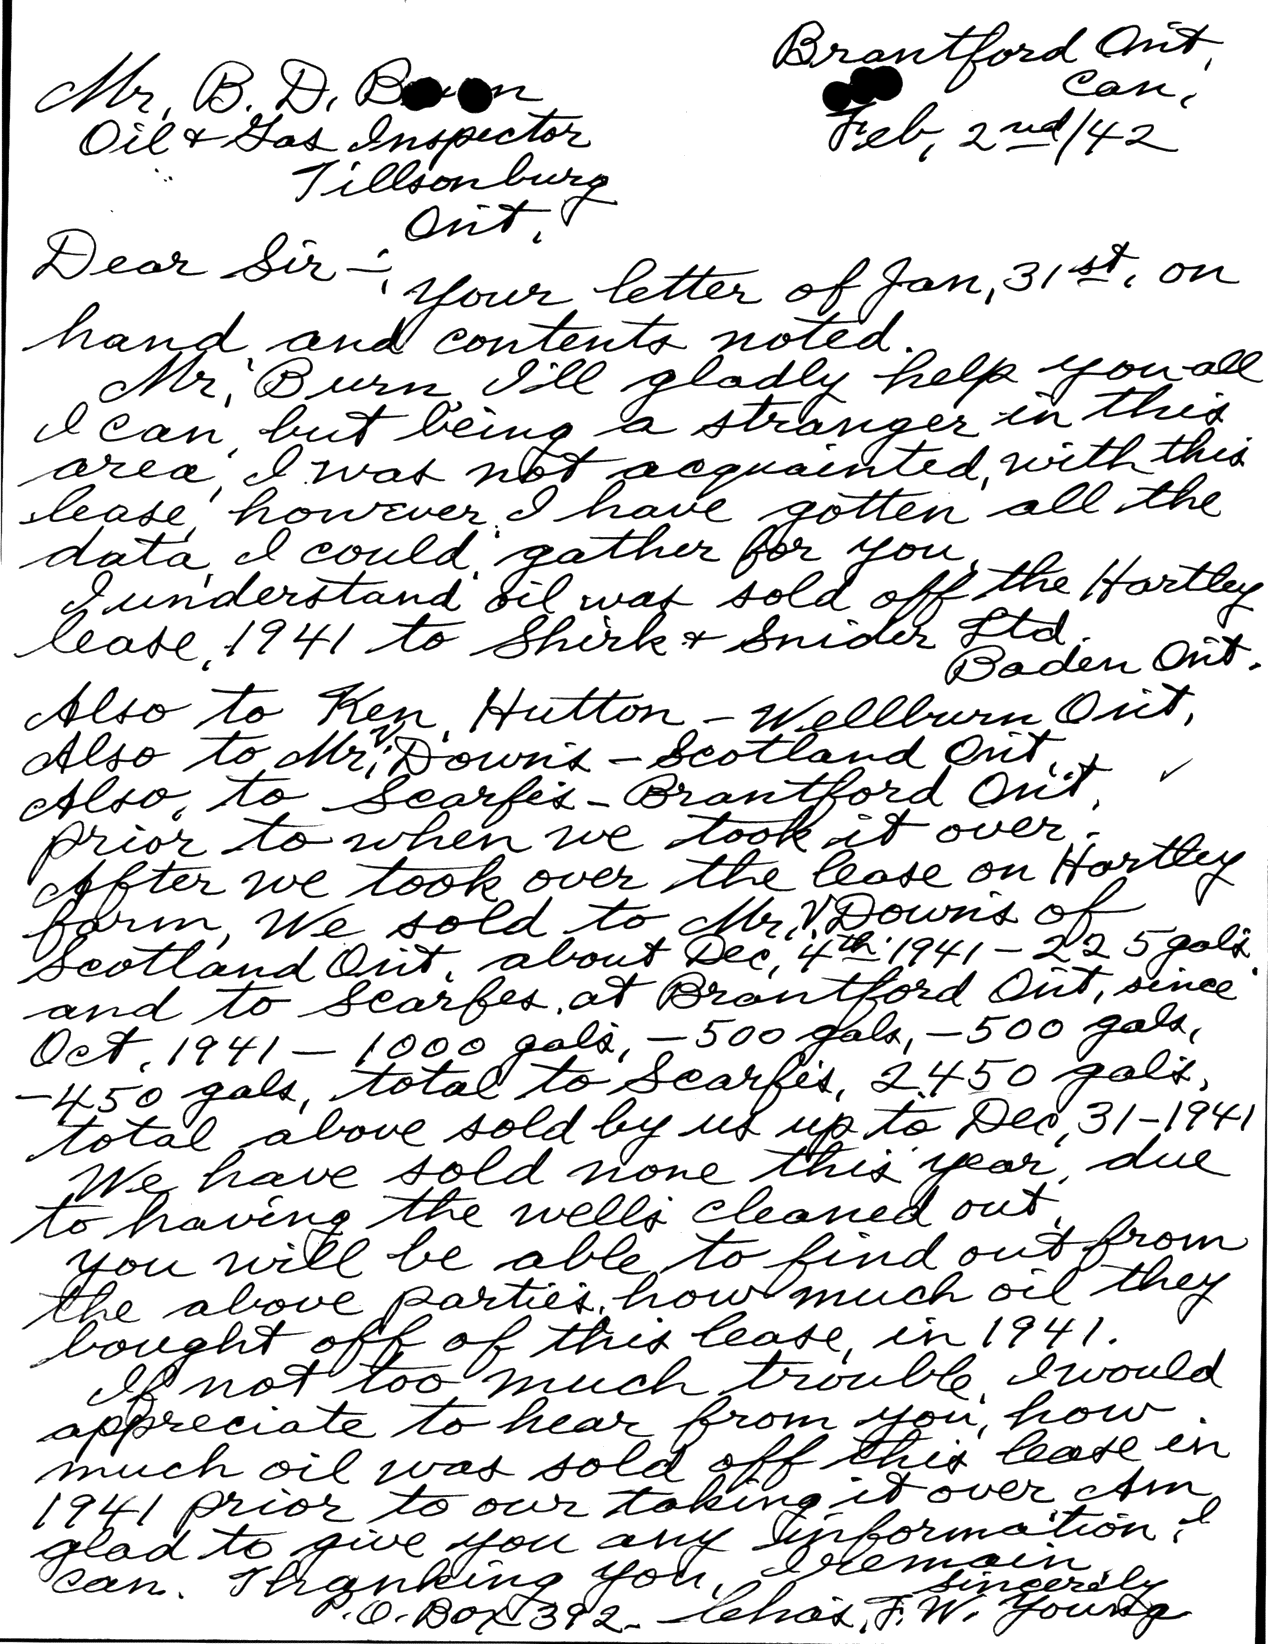 Brantford Ont,
Can,
Feb, 2nd/42
Mr, B. D. B n
Oil & Gas Inspector
Tillsonburg
Ont,
Dear Sir -; Your letter of Jan, 31st, on
hand, and contents noted.
Mr, Burn, I'll gladly help you all
I can, but being a stranger in this
area, I was not acquainted, with this
lease, however, I have gotten all the
data, I could, gather for you,
I understand oil was sold off the Hartley
lease, 1941 to Shirk & Snider Ltd.
Baden Ont.
Also to Ken, Hutton - Wellburn Ont,
Also to Mr, V. Down's - Scotland Ont,
Also, to Scarfe's - Brantford Ont,
prior to when we took it over.
After we took over the lease on Hartley
farm, We sold to Mr, V. Down's of
Scotland Ont, about Dec, 4th 1941 - 225 gal's
and to Scarfes, at Brantford Ont, since
Oct, 1941 - 1000 gal's, - 500 gals, - 500 gals,
- 450 gals, total to Scarfe's, 2450 gal's,
total above sold by us up to Dec, 31-1941
We have sold none this year, due
to having the wells cleaned out,
You will be able, to find out from
the above parties, how much oil they
bought off of this lease, in 1941.
If not too much trouble, I would
appreciate to hear from you, how
much oil was sold off this lease in
1941 prior to our taking it over, Am
glad to give you any information, I
can. Thanking you, I remain
Sincerely
P.O. Box 392 - Chas, F. W. Young